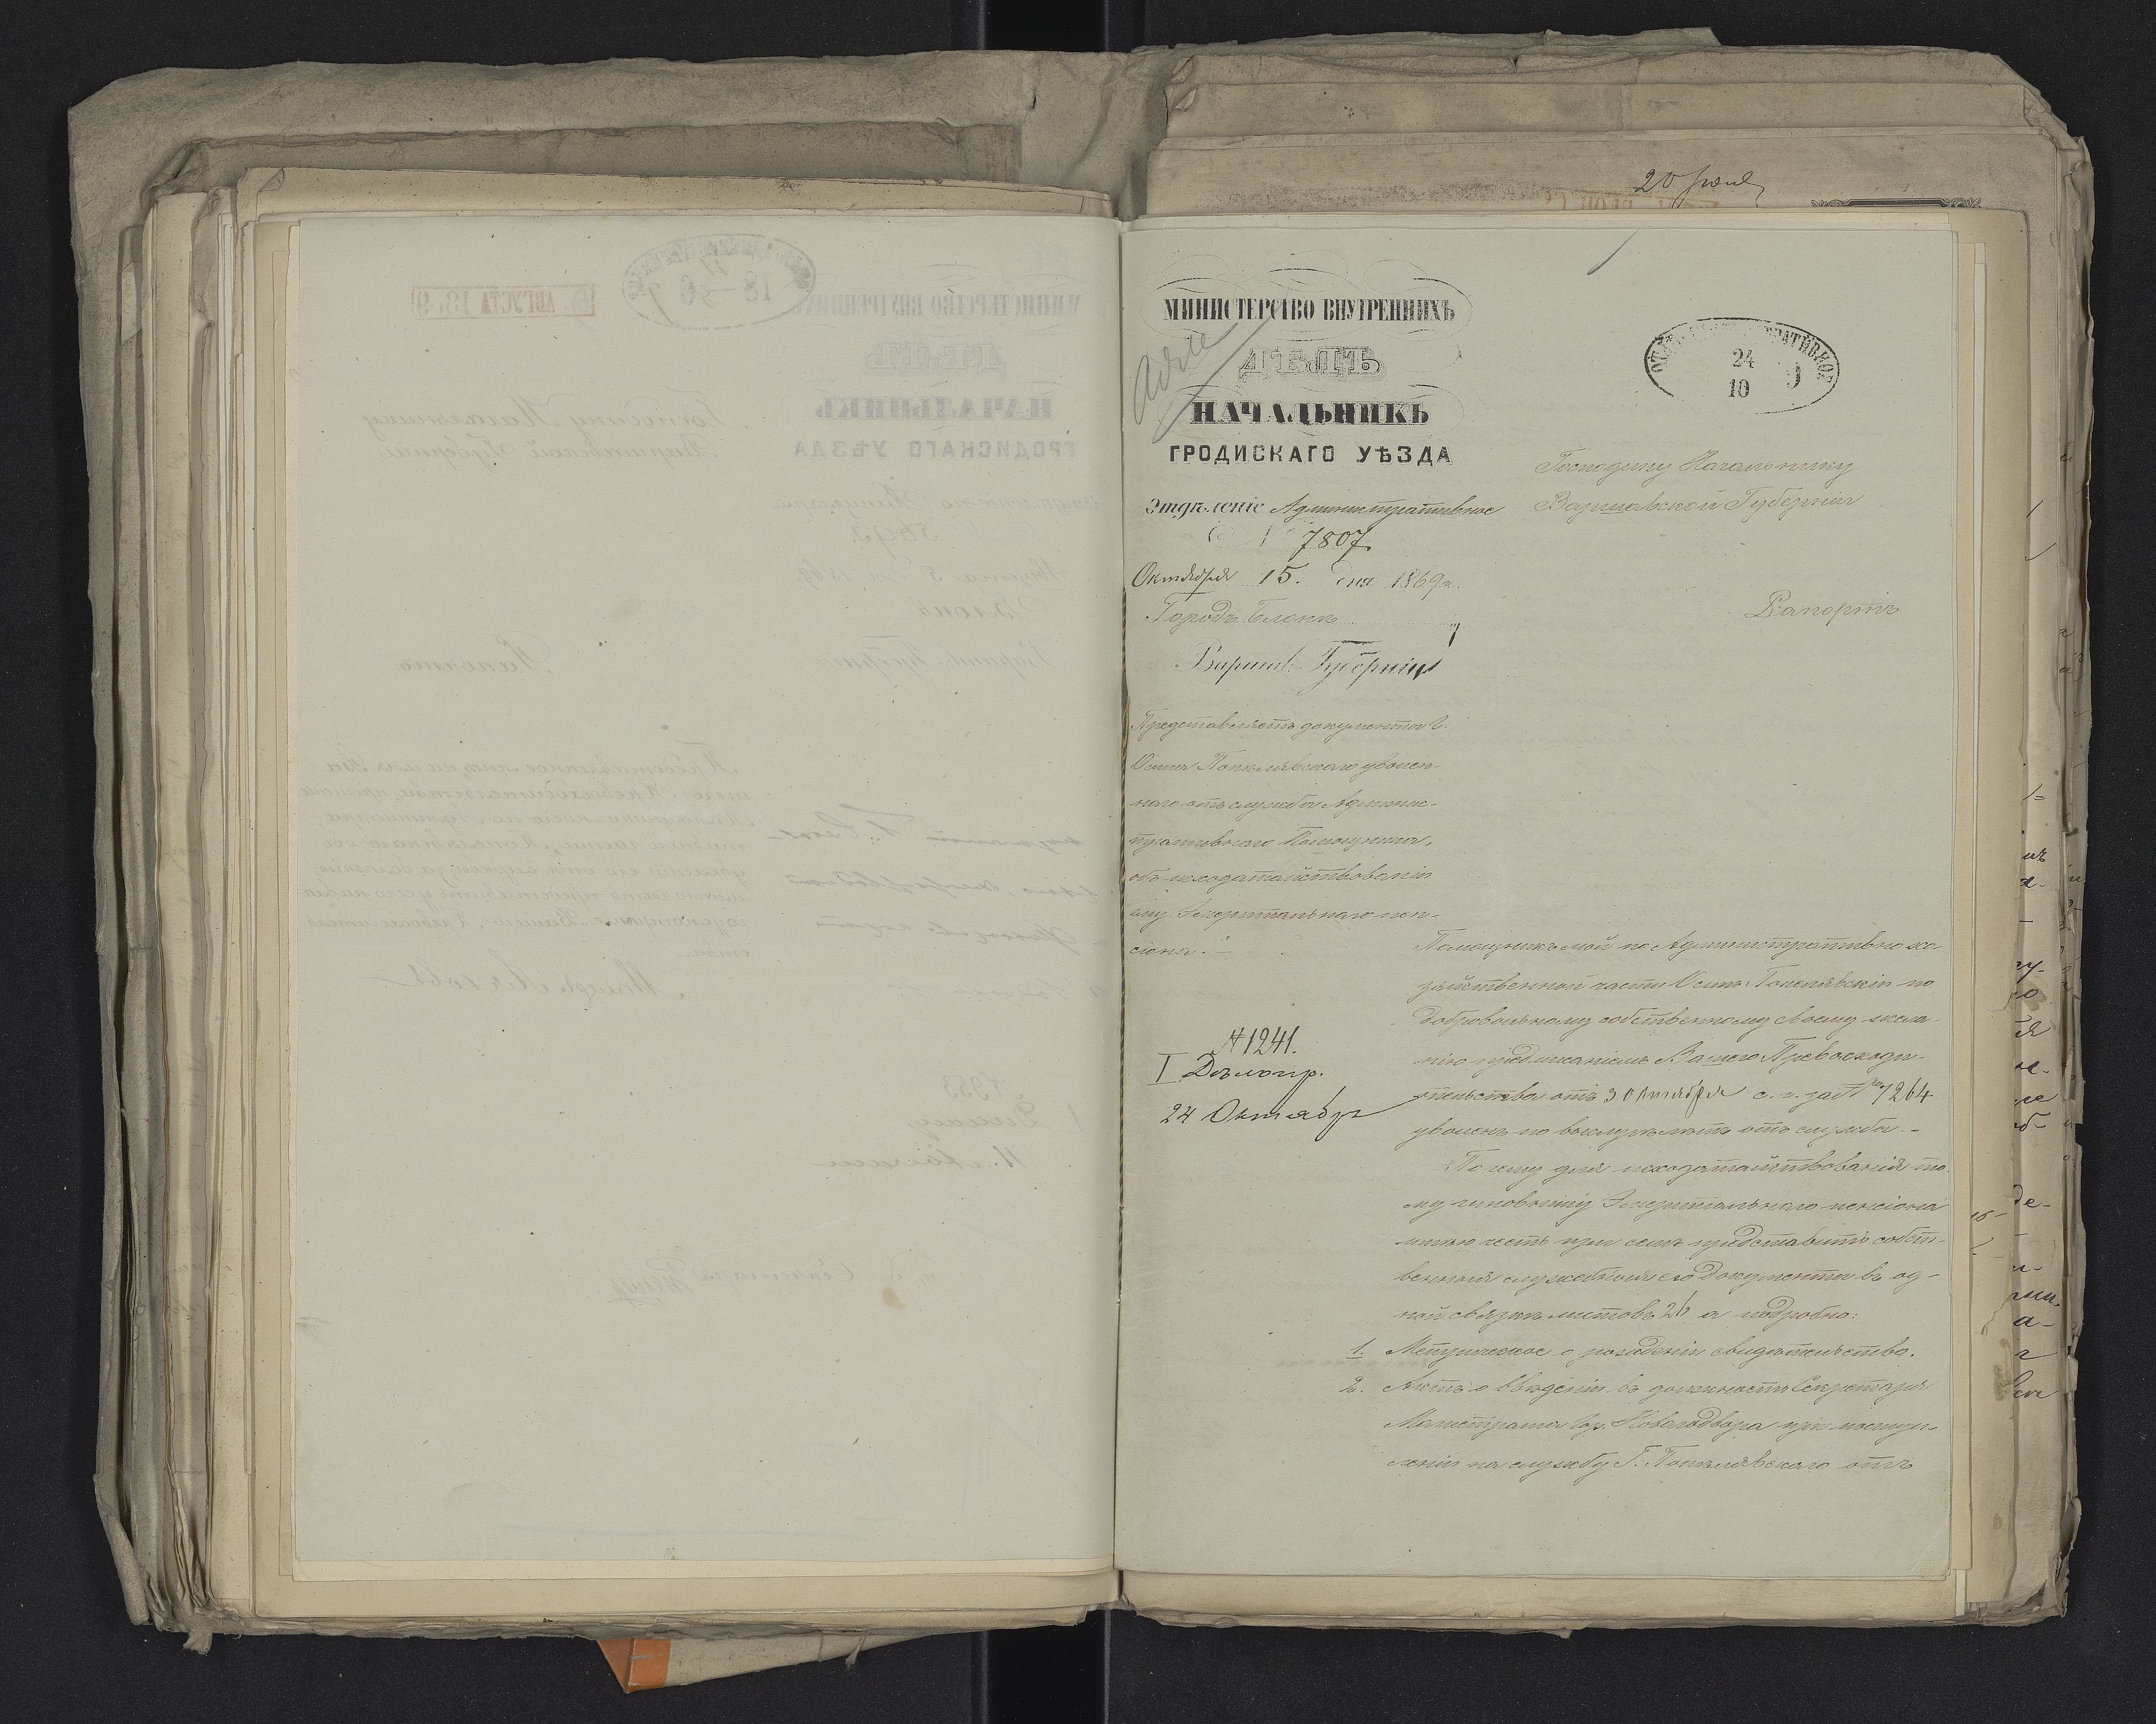 20 Іюня
МИНИСТЕРСТВО ВНУТРЕННИХЪ
ДѢЛЪ
НАЧАЛЬНИКЪ
ГРОДИСКАГО УѢЗДА
Отдѣленіе Административное
7807
Октября 15. дня 1869 г.
Городъ Блоне
Варшав. Губерніи
24
10
Господину Начальнику
Варшавской Губерніи
Рапортъ
Представляетъ документы Г.
Осипа уволен-
наго отъ службы Админис-
тративнаго Помощника,
объ исходатайствованіи
ему Эмеритальнаго пен-
сіона.
№ 1241.
I Дѣлопр.
24 Октября
Помощникъ мой по Административно хо-
зяйственной части Осипъ по
добровольному собственному своему жела-
нію предписаніемъ Вашего Превосходи-
тельства отъ 3 Октября с. г. за № 7264
уволенъ по выслугѣ лѣтъ отъ службы.-
По чему для исходатайствованія то-
му чиновнику Эмеритальнаго пенсіона
имѣю честь при семъ представить собст-
венныя служебныя его документы въ од-
ной связкѣ листовъ 26 а подробно:
1. Метрическое о рожденіи свидѣтельство.
2. Актъ о введеніи въ должность Секретаря
Магистрата Гор. Новогодвора при поступ-
леніи на службу Г. отъ